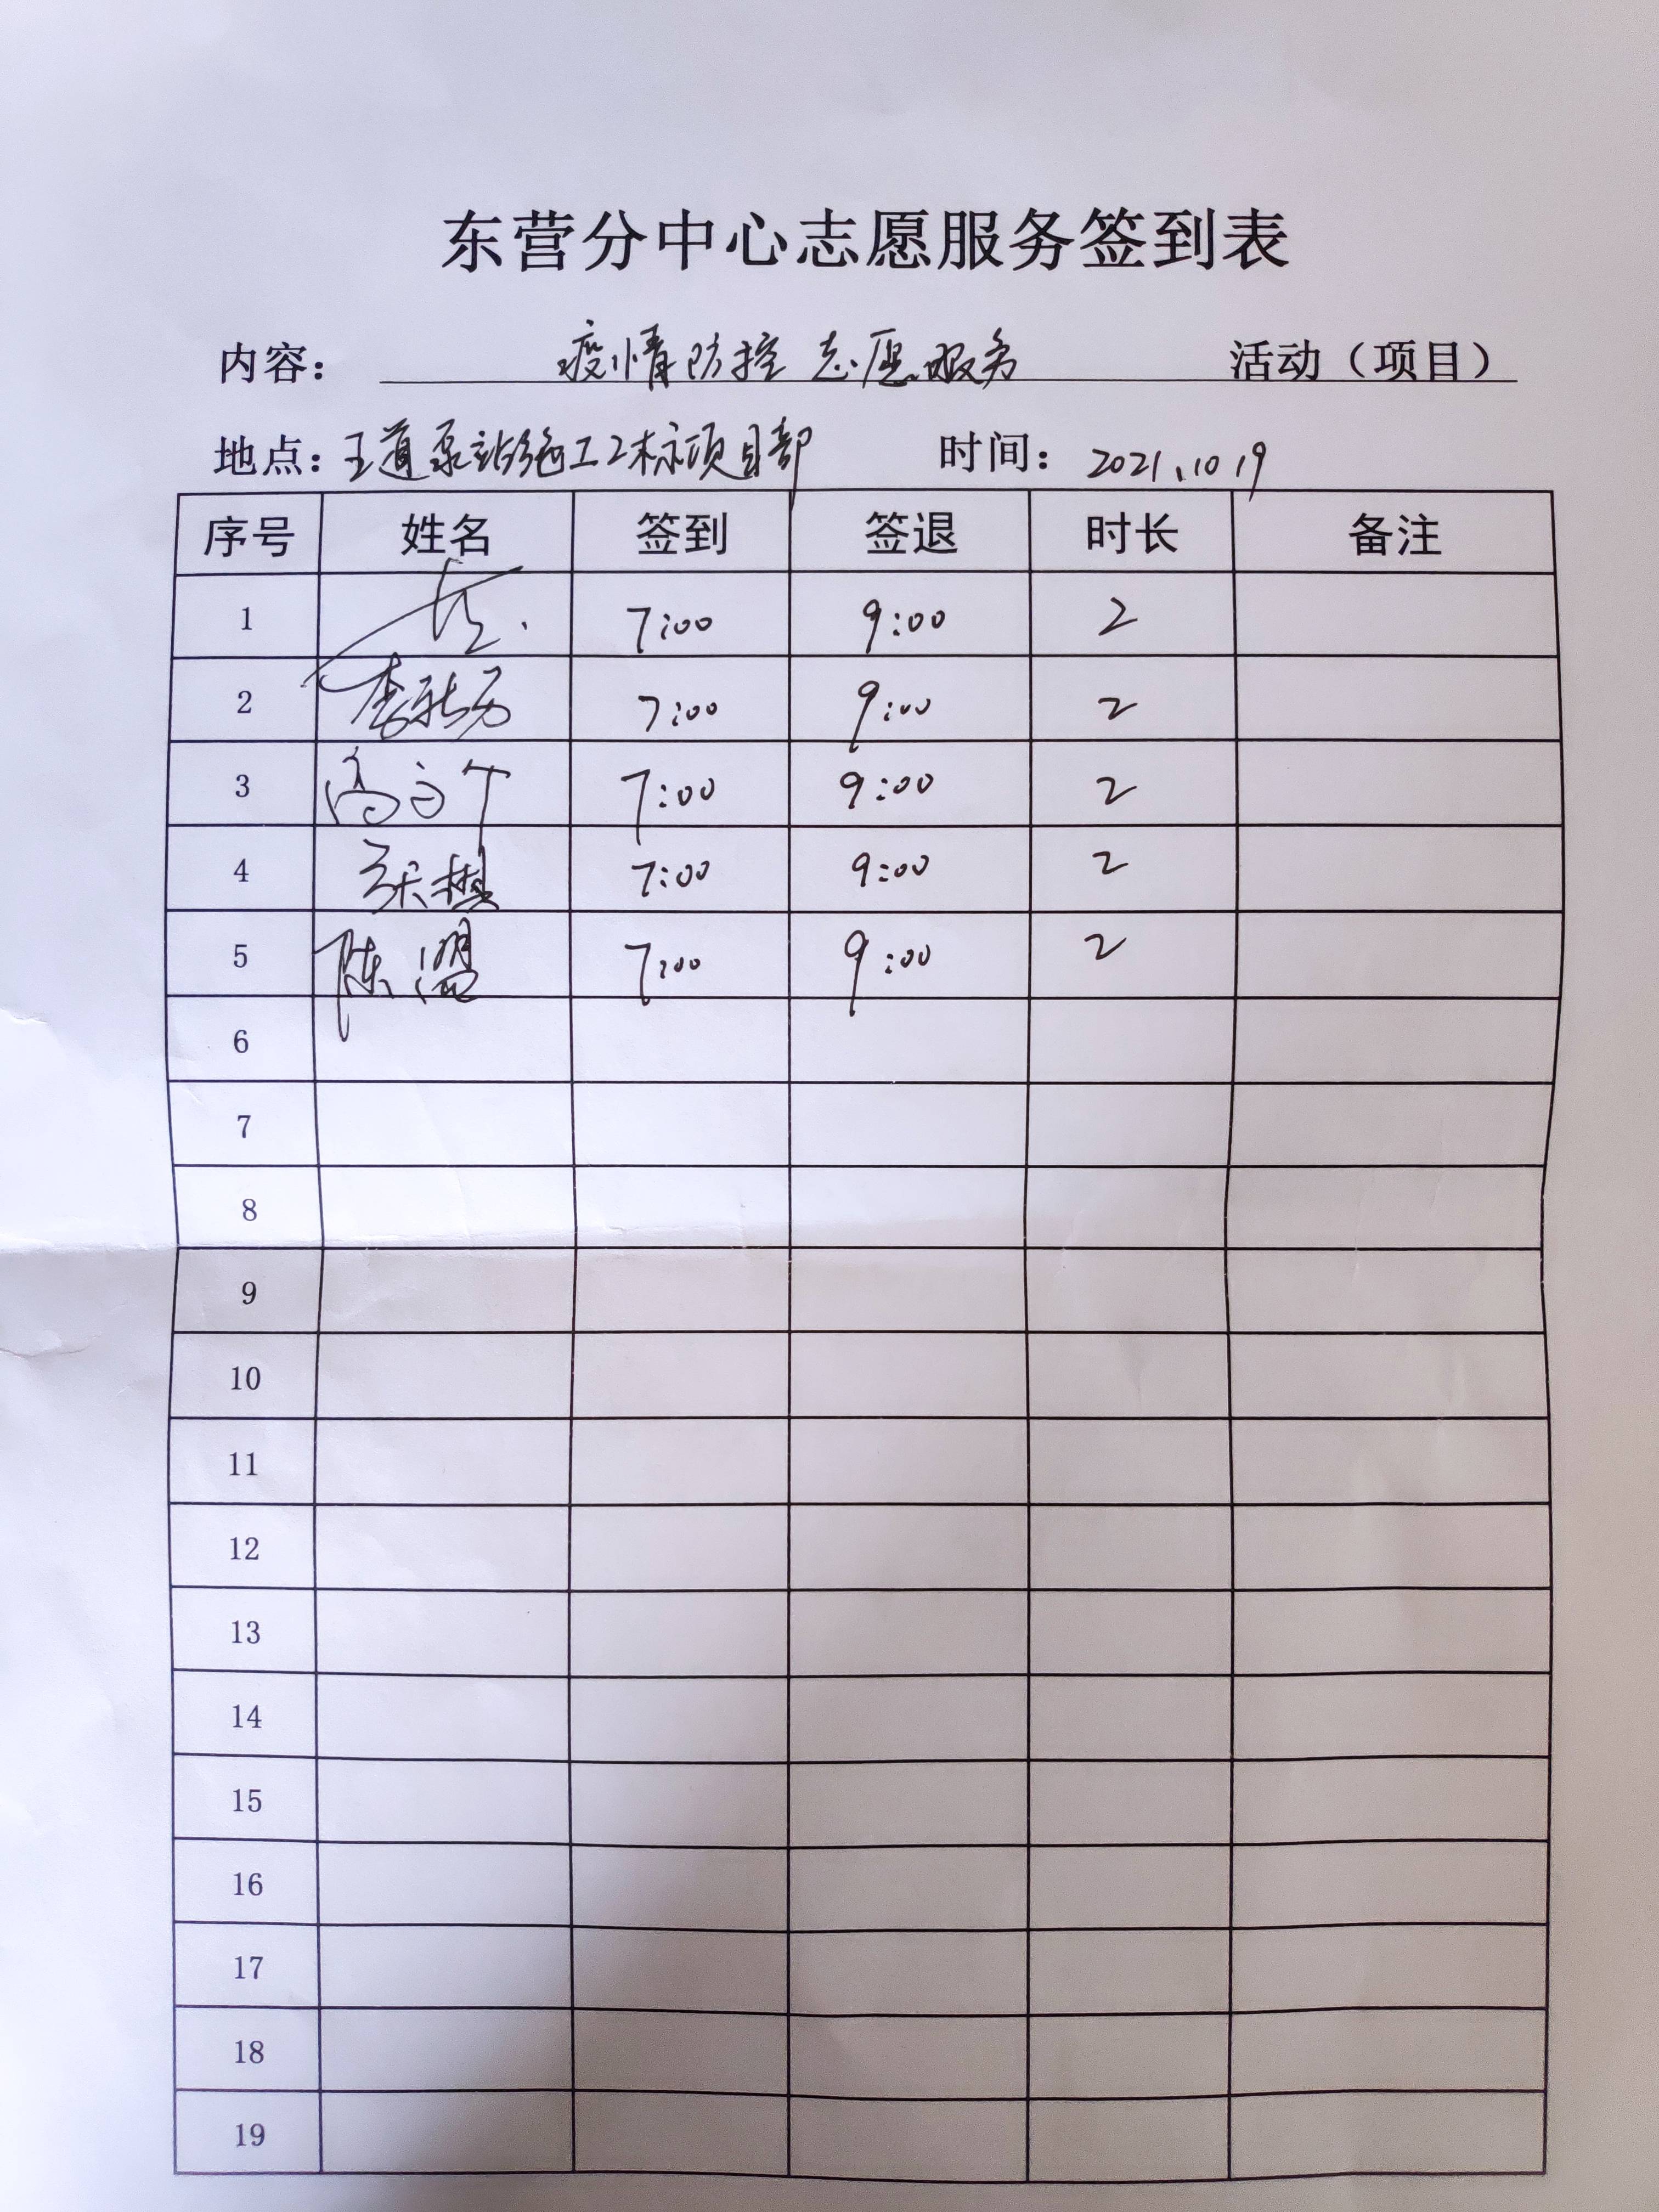 东营分中心志愿服务签到表
内容： 疫情防控志愿服务 活动（项目）
地点：王道泵站施工2标项目部 时间：2021.10.19
序号 姓名 签到 签退 时长 备注
1 7:00 9:00 2
2 7:00 9:00 2
3 7:00 9:00 2
4 7:00 9:00 2
5 陈 7:00 9:00 2
6
7
8
9
10
11
12
13
14
15
16
17
18
19